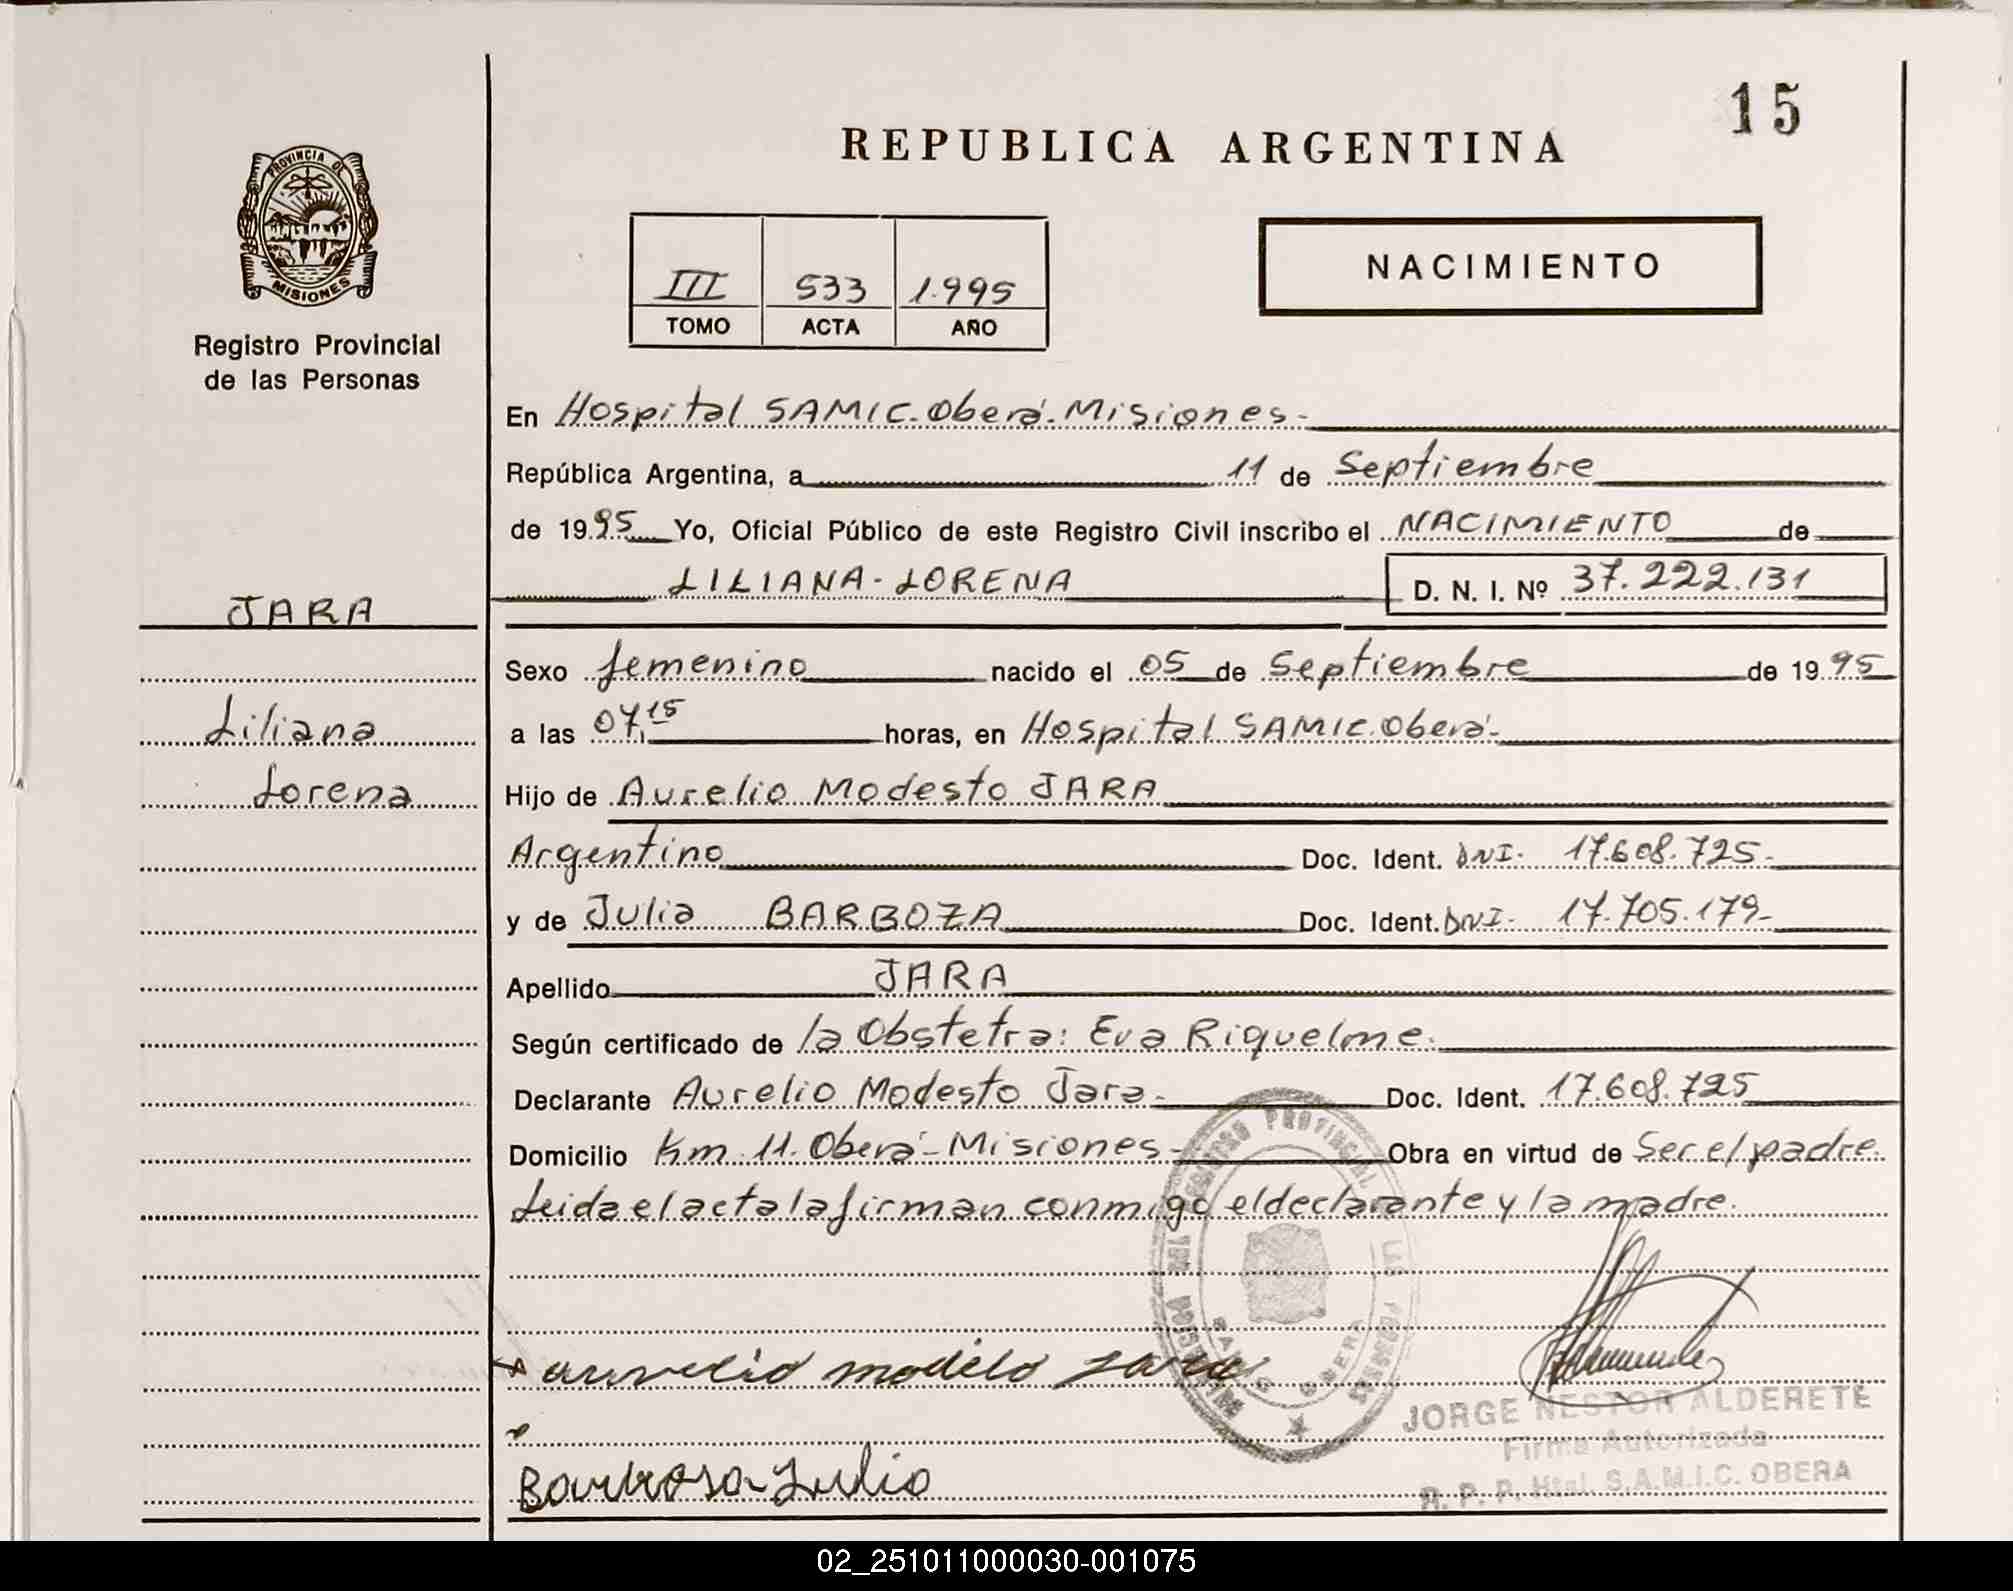 15
REPUBLICA ARGENTINA
PROVINCIA DE
MISIONES
Registro Provincial
de las Personas
III 533 1.995
TOMO ACTA AÑO
NACIMIENTO
En Hospital SAMIC. Oberá. Misiones.
República Argentina, a 11 de Septiembre
de 1995 Yo, Oficial Público de este Registro Civil inscribo el NACIMIENTO de
LILIANA - LORENA D. N. I. Nº 37.222.131
JARA
Liliana
Lorena
Sexo femenino nacido el 05 de Septiembre de 1995
a las 07,15 horas, en Hospital SAMIC. Oberá.
Hijo de Aurelio Modesto JARA
Argentino Doc. Ident. DNI. 17.608.725.
y de Julia BARBOZA Doc. Ident. DNI. 17.705.179-
Apellido JARA
Según certificado de la Obstetra: Eva Riquelme.
Declarante Aurelio Modesto Jara- Doc. Ident. 17.608.725
Domicilio Km. 11. Oberá - Misiones- Obra en virtud de Ser el padre
Leida el acta la firman conmigo el declarante y la madre.
aurelio modelo Jara
JORGE NESTOR ALDERETE
Firma Autorizada
R. P. P. Htal. S.A.M.I.C. OBERA
Barbosa Julia
02_251011000030-001075